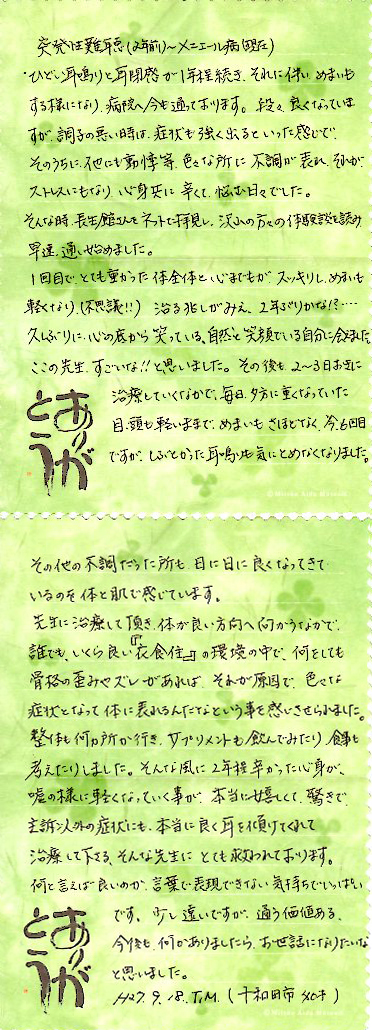 突発性難聴(2年前)~メニエール病(現在)
・ひどい耳鳴りと耳閉感が1年程続き、それに伴い、めまいも
する様になり、病院へ今も通っております。段々、良くなっていま
すが、調子の悪い時は、症状も強く出るといった感じで、
そのうちに、他にも動悸等、色々な所に不調が表れ、それが、
ストレスにもなり、心身共に辛くて、悩む日々でした。
そんな時、長生館さんをネットで拝見し、沢山の方々の体験談を読み、
早速、通い始めました。
1回目で、とても重かった体全体と心までもが、スッキリし、めまいも
軽くなり、(不思議!!) 治る兆しがみえ、2年ぶりかな!?‥‥
久しぶりに、心の底から笑っている、自然と笑顔でいる自分に会えました。
ここの先生、すごいな!!と思いました。その後も、2~3日おきに
治療していくなかで、毎日、夕方に重くなっていた
目、頭も軽いままで、めまいもさほどなく、今、6回目
ですが、しぶとかった耳鳴りも気にとめなくなりました。
ありがとう
© Mitsuo Aida Museum
その他の不調だった所も、日に日に良くなってきて
いるのを体と肌で感じています。
先生に治療して頂き、体が良い方向へ向かうなかで、
誰でも、いくら良い『衣食住』の環境の中で、何をしても
骨格の歪みやズレがあれば、それが原因で、色々な
症状となって体に表れるんだなという事を感じさせられました。
整体も何カ所か行き、サプリメントも飲んでみたり、食事も
考えたりしました。そんな風に2年程辛かった心身が、
嘘の様に軽くなっていく事が、本当に嬉しくて、驚きで、
主訴以外の症状にも、本当に良く耳を傾けてくれて
治療して下さる、そんな先生にとても救われております。
何と言えば良いのか、言葉で表現できない気持ちでいっぱい
です。少し遠いですが、通う価値ある、
今後も、何かありましたら、お世話になりたいな
と思いました。
H27.9.18.T.M.(十和田市 40才)
ありがとう
© Mitsuo Aida Museum